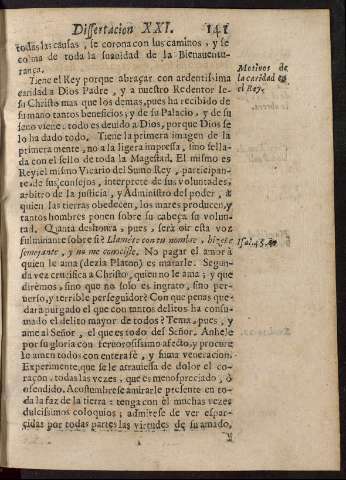 Dissertacion XXI. 141
todas las causas, se corona con sus caminos, y se
colma de toda la suauidad de la Bienauentu-
rança.
Tiene el Rey porque abraçar con ardentissima
caridad a Dios Padre, y a nuestro Redentor Ie-
su Christo mas que los demas, pues ha recibido de
su mano tantos beneficios; y de su Palacio, y de su
seno viene, todo es deuido a Dios, porque Dios se
lo ha dado todo. Tiene la primera imagen de la
primera mente, no a la ligera impressa, sino sella-
da con el sello de toda la Magestad. El mismo es
Rey, el mismo Vicario del Sumo Rey, participan-
te de sus consejos, interprete de sus voluntades,
arbitro de la justicia, y Administro del poder, à
quien las tierras obedecen, los mares producen, y
tantos hombres ponen sobre su cabeça su volun-
tad. Quanta deshonra, pues, serà oìr esta voz
fulminante sobre sì? Llamète con tu nombre, hizete
semejante, y no me conociste. No pagar el amor à
quien le ama (dezia Platon) es matarle. Segun-
da vez crucifica a Christo, quien no le ama; y que
diremos, sino que no solo es ingrato, sino per-
uerso, y terrible perseguidor? Con que penas que-
dara purgado el que con tantos delitos ha consu-
mado el delito mayor de todos? Tema, pues, y
ame al Señor, el que es todo del Señor. Anhele
por su gloria con feruorosissimo afecto, y procure
le amen todos con entera fè, y suma veneracion.
Experimente, que se le atrauiessa de dolor el co-
raçon, todas las vezes, que es menospreciado, ò
ofendido. Acostumbrese a mirarle presente en to-
da la faz de la tierra: tenga con el muchas vezes
dulcissimos coloquios; admirese de ver espar-
cidas por todas partes las virtudes de su amado,
Motiuos de
la caridad en
el Rey.
Isai. 45.